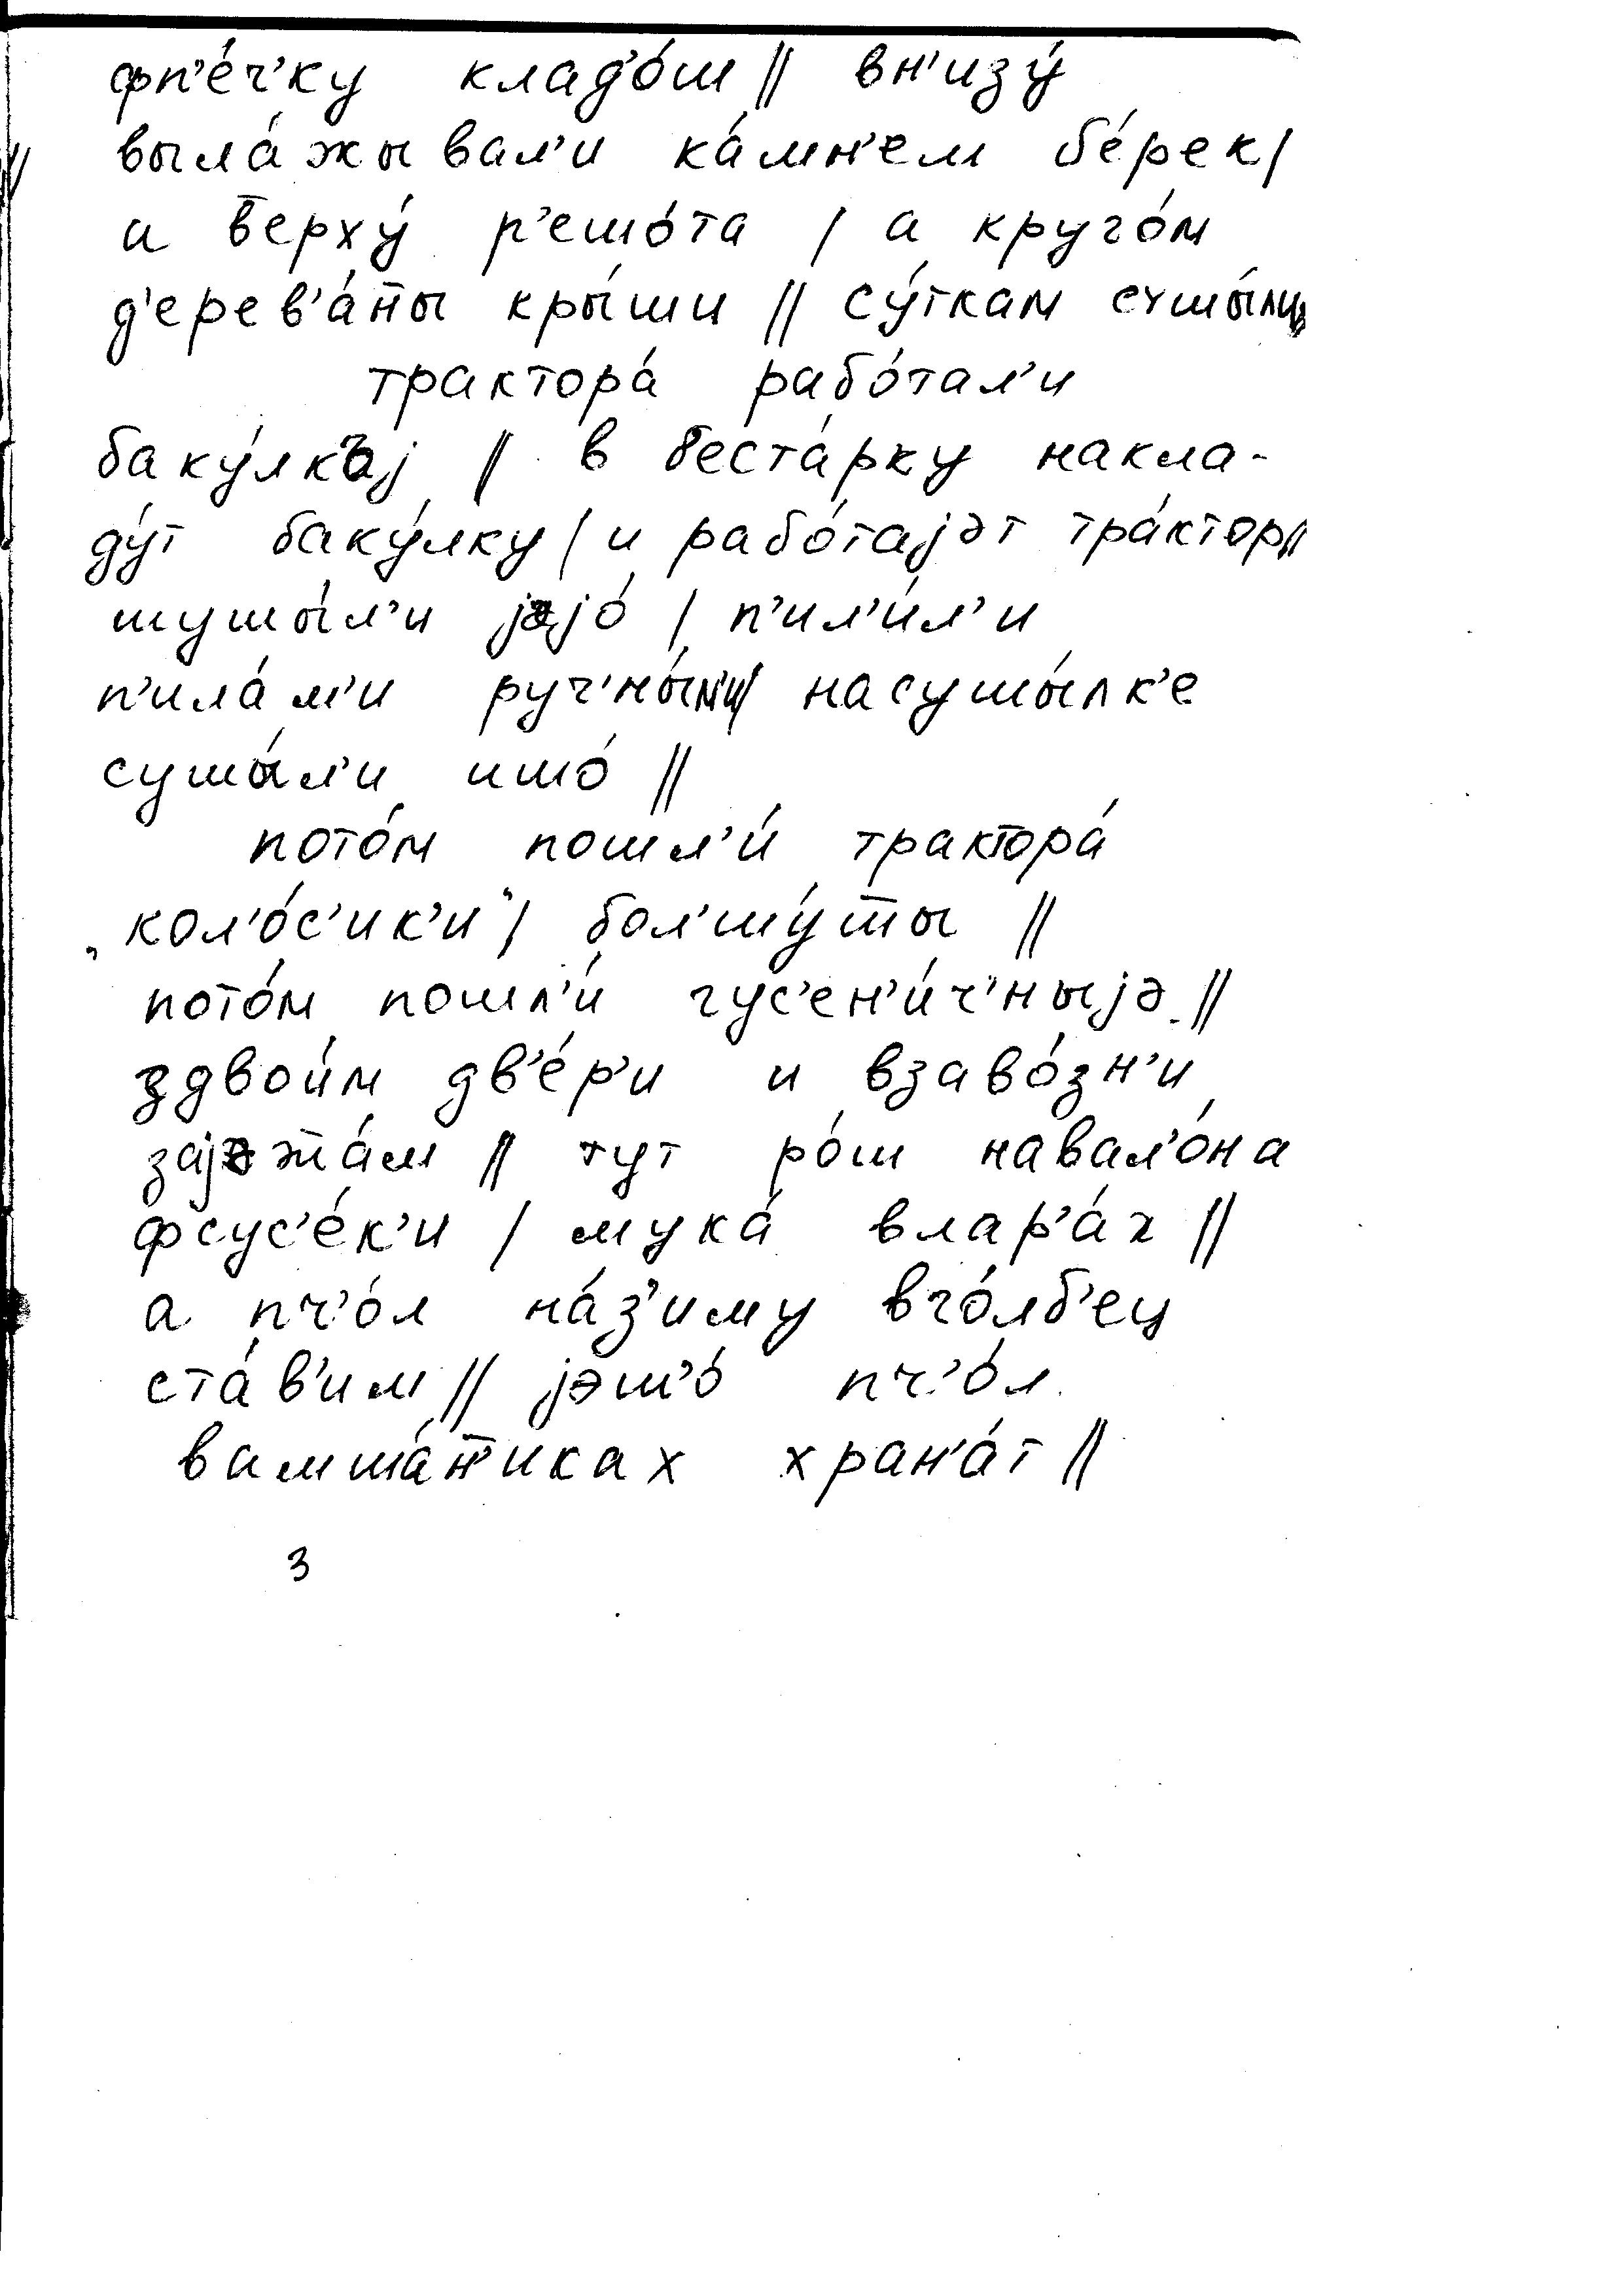 фп'е́ч'ку клад'о́ш // вн'изу́
// выла́жывал'и ка́мн'ем бе́рек/
а в̄ерху́ р'ешо́та / а круго́м
д'ерев'а́н̄ы кры́ши // су́ткам сушы́ли
трактора́ рабо́тал'и
баку́лкъј // в беста́рку накла-
ду́т баку́лку / и рабо́тајэт тра́ктор//
шушы́л'и јэјо́ / п'ил'и́л'и
п'ила́м'и руч'ны́м'и/ насушы́лк'е
сушы́л'и ишо́ //
пото́м пошл'и́ трактора́
"кол'о́с'ик'и" / бол'шу́шы //
пото́м пошл'и́ гус'ен'и́ч'ныјэ //
здвои́м дв'е́р'и и взаво́зн'и
зајэж̄а́м // тут ро́ш навал'о́на
фсус'е́к'и / мука́ влар'а́х //
а пч'о́л на́з'иму вго́лб'ец
ста́в'им // јэш'о́ пч'о́л
вамша́н̄'иках хран'а́т //
3